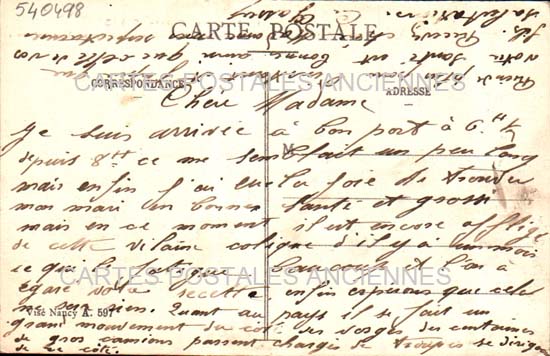 540498
CARTE POSTALE
CARTES POSTALES ANCIENNES
CORRESPONDANCE
ADRESSE
Chère Madame
Je suis arrivée à bon port à 6 H ½
M
depuis 8 H ce me semblait un peu long
mais enfin j'ai eu la joie de trouver
mon mari en bonne santé et grossi
mais en ce moment il est encore affligé
de cette vilaine colique d'il y a un mois
ce qui le fatigue beaucoup et l'on a
CARTES POSTALES ANCIENNES
égaré votre recette, enfin espérons que cela
ne sera rien. Quant au pays il se fait un
Visé Nancy A. 597
grand mouvement du côté des Vosges des centaines
de gros camions passent chargés de troupes se dirigent
de ce côté.
votre santé est bonne ainsi que celle de vos